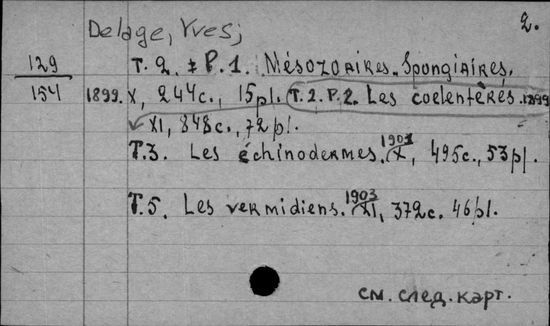 2.
Delage, Yves;
129 T. 2. P. 1. Mésozoaires. Spongiaires,
154 1899. X, 244с., 15pl. T.2. P.2. Les coelentérés. 1899
XI, 848с., 72pl.
T.3. Les échinodermes. 1903 X, 495с., 53pl.
T.5. Les vermidiens. 1903 XI, 372с. 46pl.
см. след. карт.